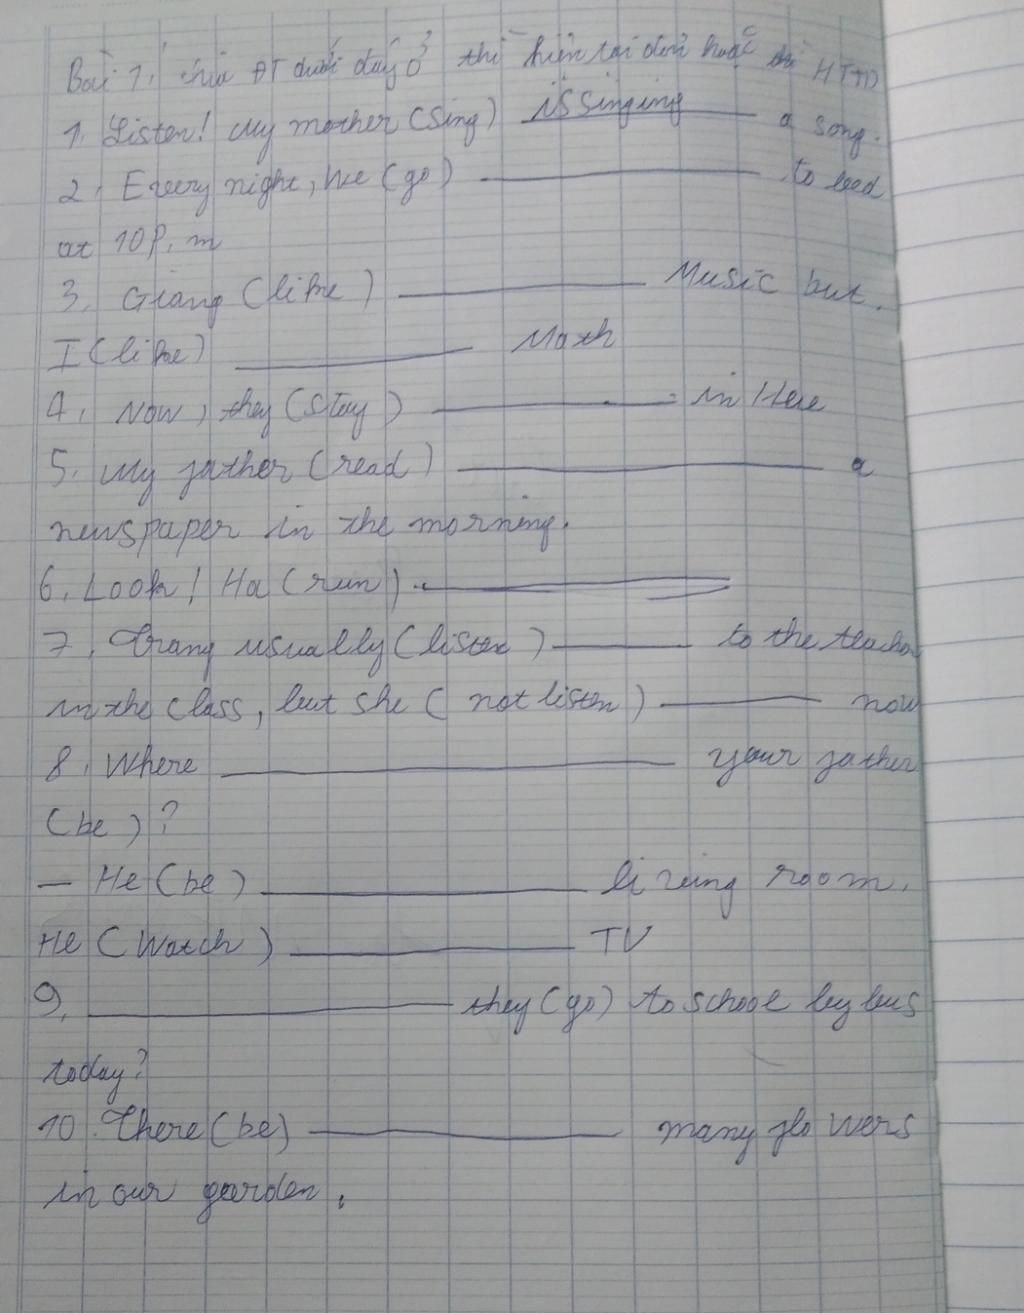 Bài 1, chia ĐT dưới đây ở thì hiện tại đơn hoặc thì HTTD
1, Listen! My mother (sing) is singing a song.
2, Every night, we (go) ____ to bed
at 10 P, m
3, Giang (like) ____ Music but.
I (like) ____ Math
4, Now, they (stay) ____ in Hue
5, My father (read) ____ a
newspaper in the morning.
6, Look! Ha (run) ____
7, Trang usually (listen) ____ to the teacher
in the class, but she (not listen) ____ now
8, Where ____ your father
(be)?
— He (be) ____ living room.
He (Watch) ____ TV
9, ____ they (go) to school by bus
today?
10 There (be) ____ many flowers
in our garden.